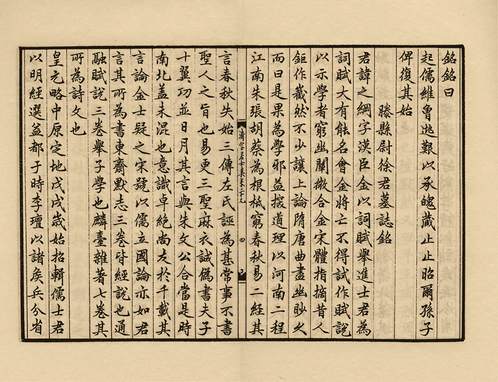 銘銘曰
起儒維魯逃艱以承 藏止止昭爾孫子
俾復其始
滕縣尉徐君墓誌銘
君諱之綱字漢臣金以詞賦舉進士君為
詞賦大有能名會金將亡不得試作賦説
以示學者窮幽闡微合金宋體指摘昔人
鉅作截然不少讓上論隋唐曲盡幽眇火
而曰是果為學邪益搜道理以河南二程
江南朱張胡蔡為根柢窮春秋易二經其
清容居士集卷二十九
四
言春秋失始三傳左氏誣為甚常事不書
聖人之旨也易更三聖麻衣誠偽書夫子
十翼功並日月其言與朱文公合當是時
南北蓋未混也意識卓絶尚友於千載其
言論金士疑之宋號以儒立國論亦如君
言其所為書東齋默志三卷皆經説也通
融賦説三卷舉子學也麟臺雜著七卷其
所為詩文也
皇元略中原定地戊戌歲始招輯儒士君
以明經選益都于時李璮以諸侯兵分省